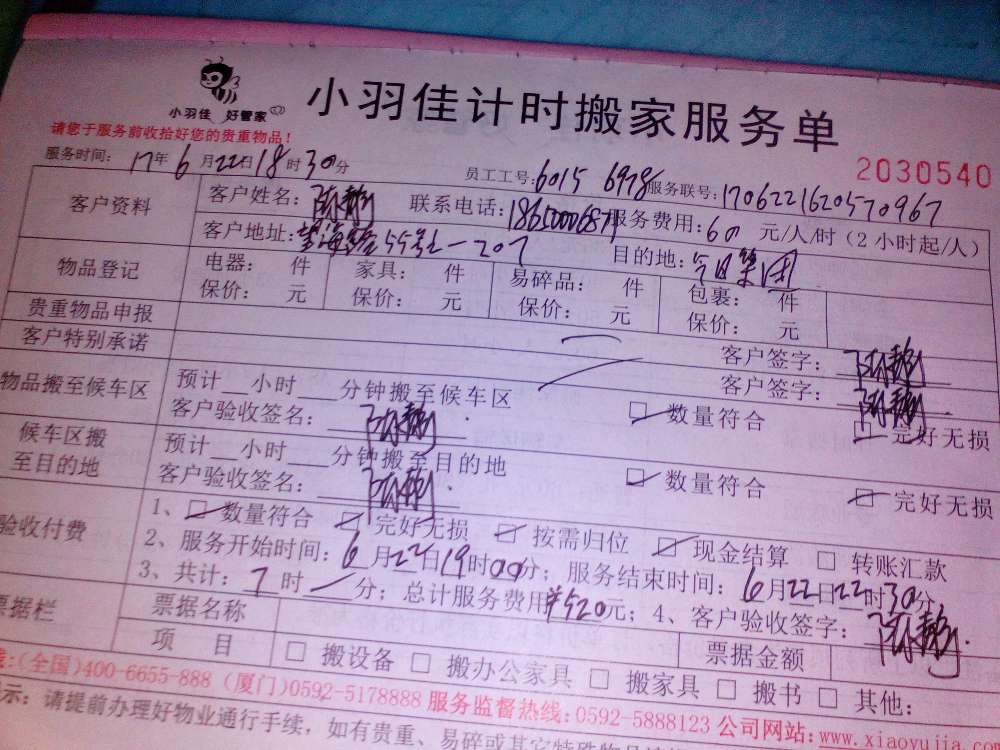 小羽佳 好管家
小羽佳计时搬家服务单
请您于服务前收拾好您的贵重物品!
2030540
服务时间: 17年6月22日18时30分 员工工号: 6015 6978 服务联号: 1706221620570967
客户资料 客户姓名: 联系电话: 服务费用: 60 元/人/时(2小时起/人)
客户地址: 望海路55号 目的地: 今日集团
物品登记 电器: 件 家具: 件 易碎品: 件 包裹: 件
保价: 元 保价: 元 保价: 元 保价: 元
贵重物品申报 客户签字:
客户特别承诺 客户签字:
物品搬至候车区 预计__小时___分钟搬至候车区 □数量符合 □完好无损
客户验收签名:
候车区搬至目的地 预计__小时___分钟搬至目的地 □数量符合 □完好无损
客户验收签名:
验收付费 1、□数量符合 □完好无损 □按需归位 □现金结算 □转账汇款
2、服务开始时间: 6月22日19时00分; 服务结束时间: 6月22日22时30分
3、共计: 7时分; 总计服务费用¥520元; 4、客户验收签字:
票据栏 票据名称 票据金额
项 目 □搬设备 □搬办公家具 □搬家具 □搬书 □其他:
线:(全国)400-6655-888 (厦门)0592-5178888 服务监督热线:0592-5888123 公司网站:www.xiaoyujia.com
示: 请提前办理好物业通行手续, 如有贵重、易碎或其它特殊物品请